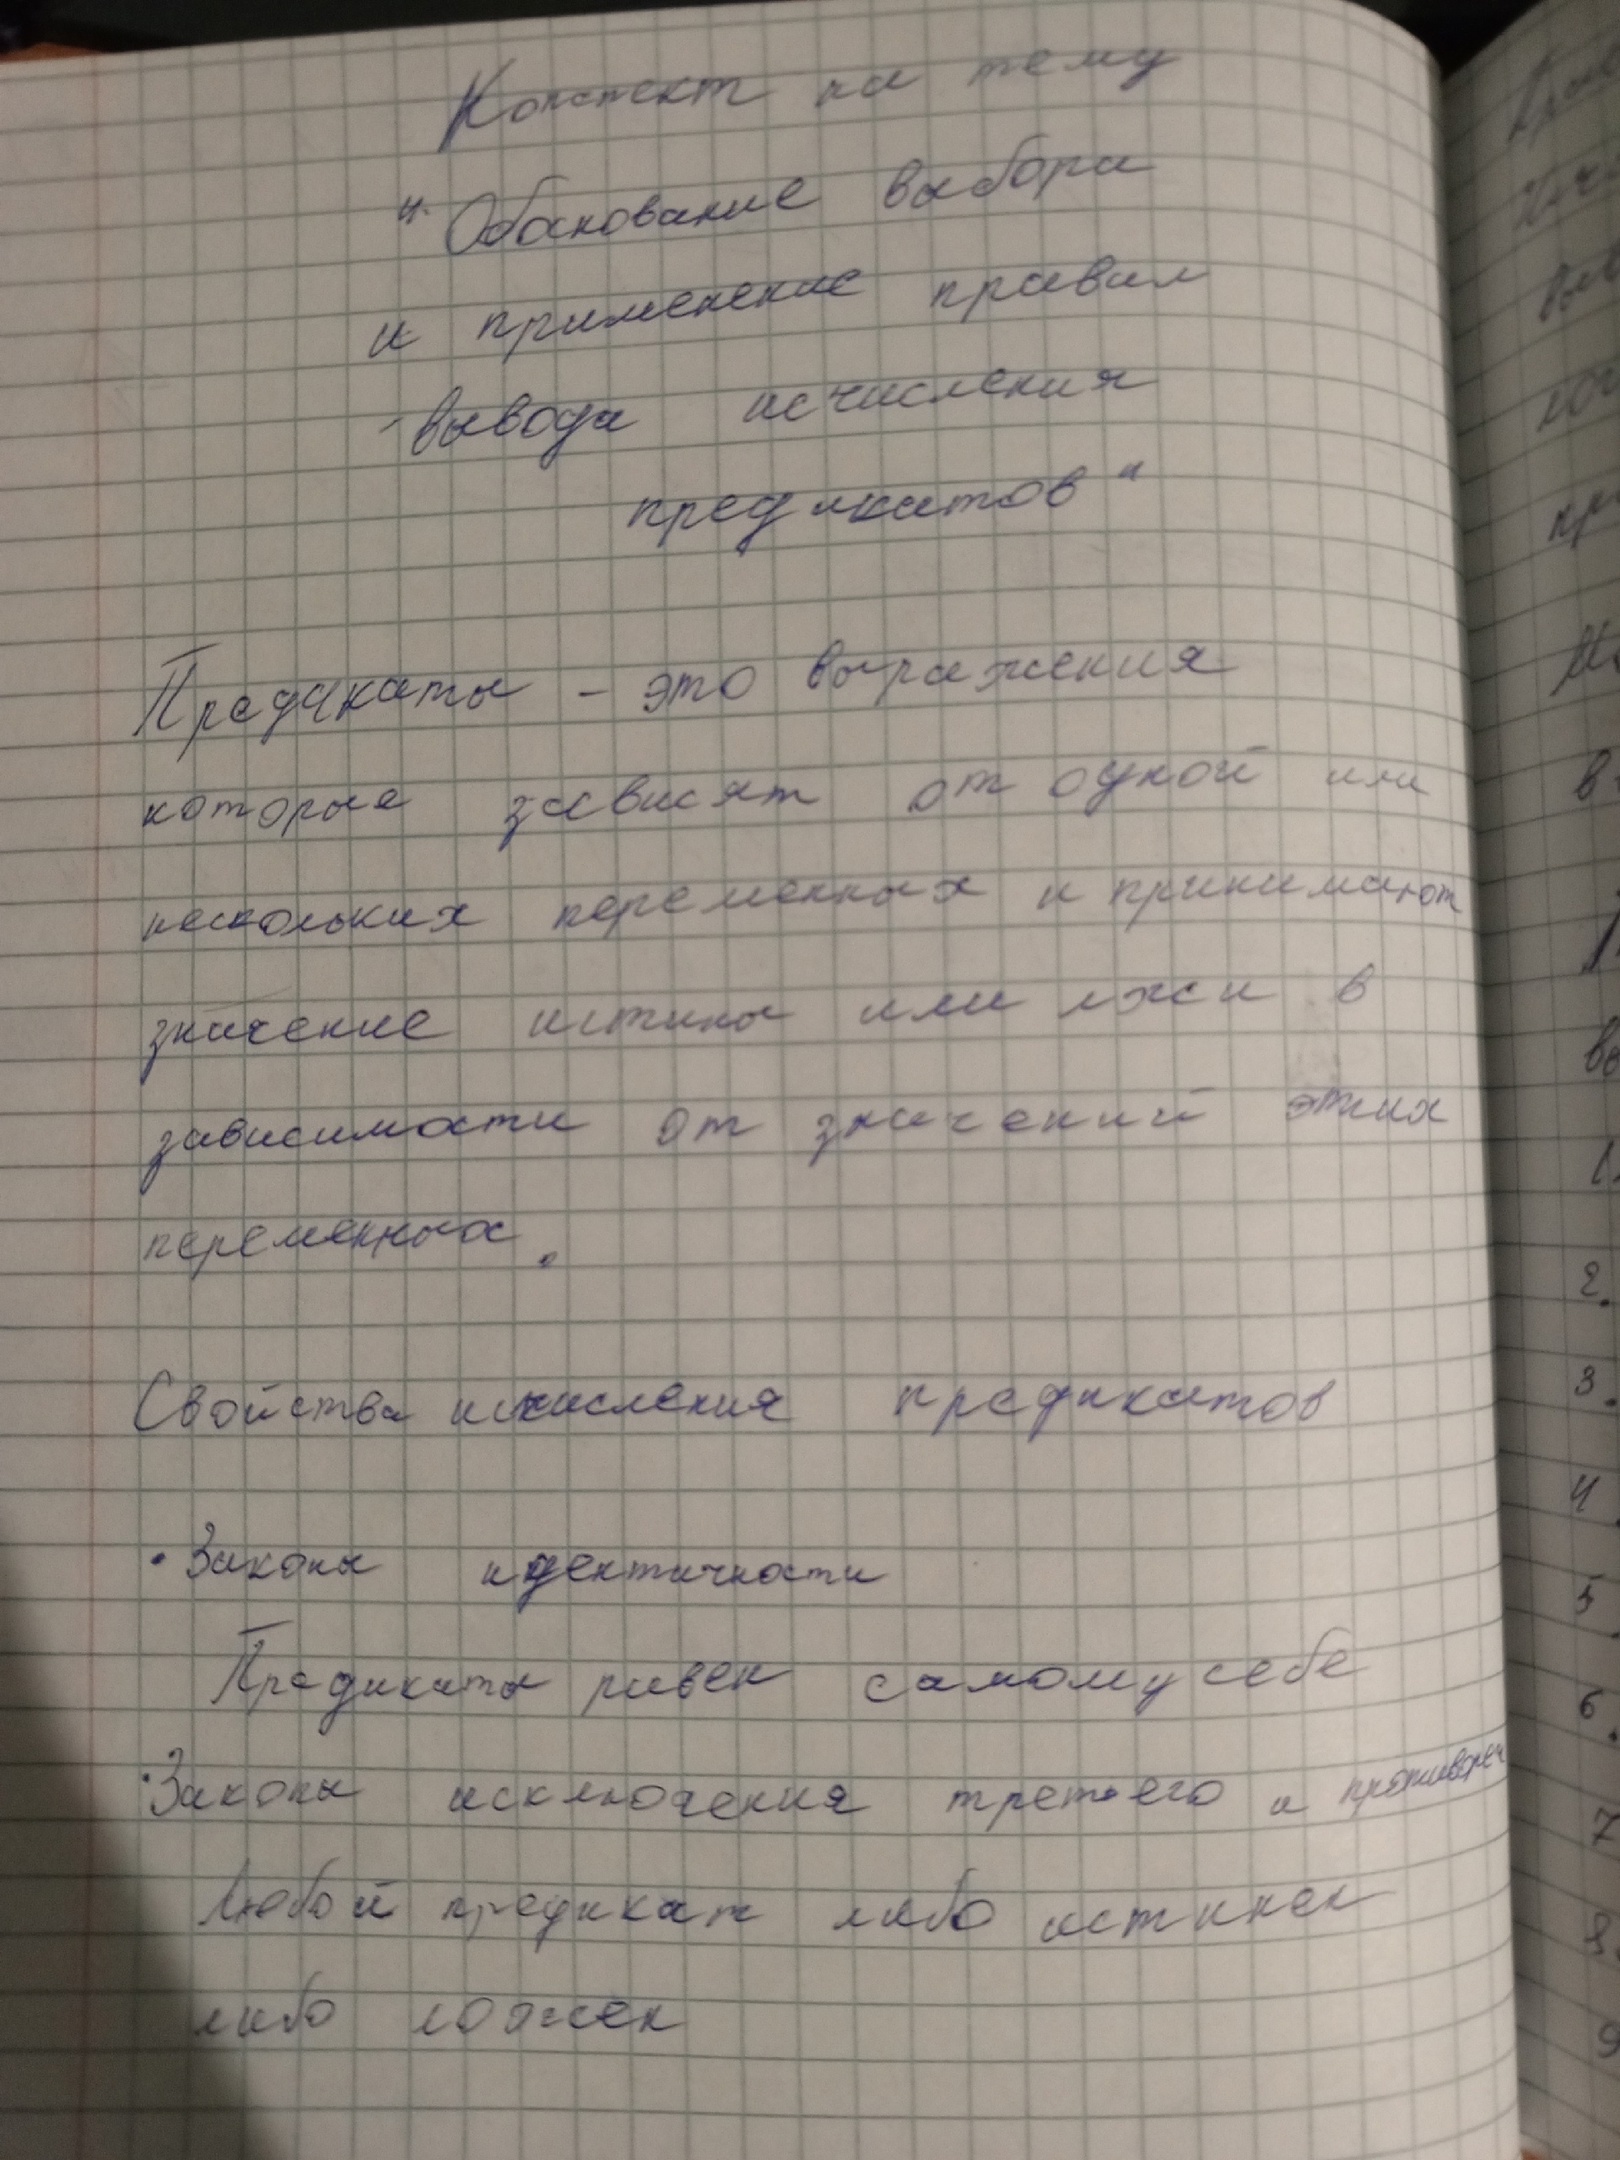 Конспект на тему
"Обоснование выбора
и применение правил
вывода исчисления
предикатов"
Предикаты - это выражения
которые зависят от одной или
нескольких переменных и принимают
значение истины или лжи в
зависимости от значений этих
переменных.
Свойства исчисления предикатов
• Законы идентичности
Предикаты равен самому себе
• Законы исключения третьего и противореч
Любой предикат либо истинен
либо ложен
2.
3.
4.
5.
6.
7
8.
9